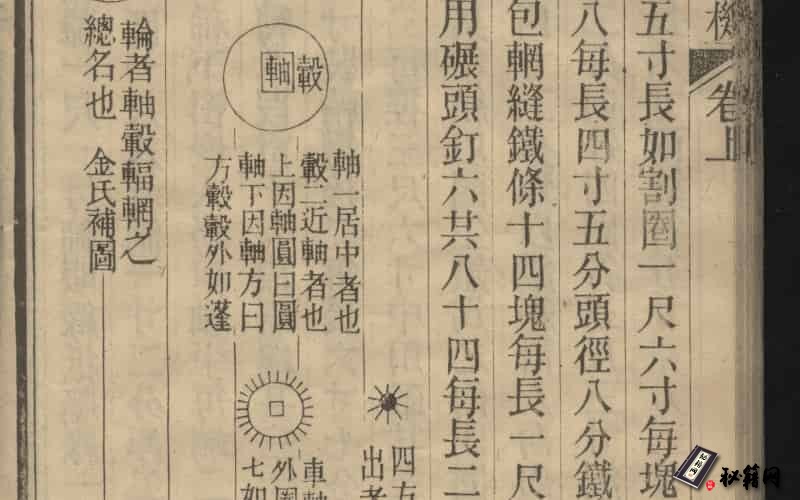 卷上
五寸長如割圈一尺六寸每塊
八每長四寸五分頭徑八分鐵
包輞縫鐵條十四塊每長一尺
用碾頭釘六共八十四每長二
四方
出者
軸一居中者也
轂二近軸者也
上因軸圓曰圓
軸下因軸方曰
方轂轂外如蓬
車軸
外圓
七如
轂
軸
輪者軸轂輻輞之
總名也 金氏補圖
秘籍网